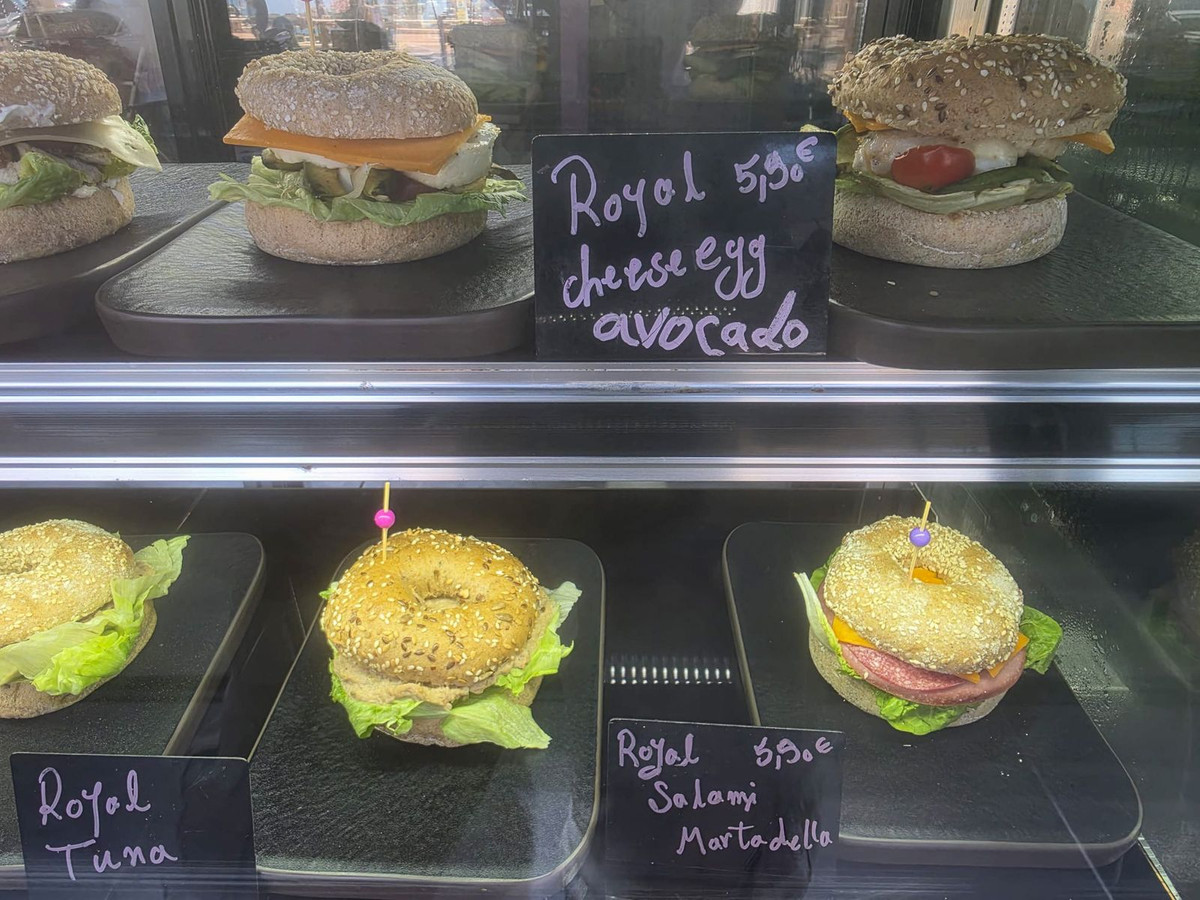 Royal 5,90€
cheese egg
avocado
Royal
Tuna
Royal 5,90€
Salami
Martadella